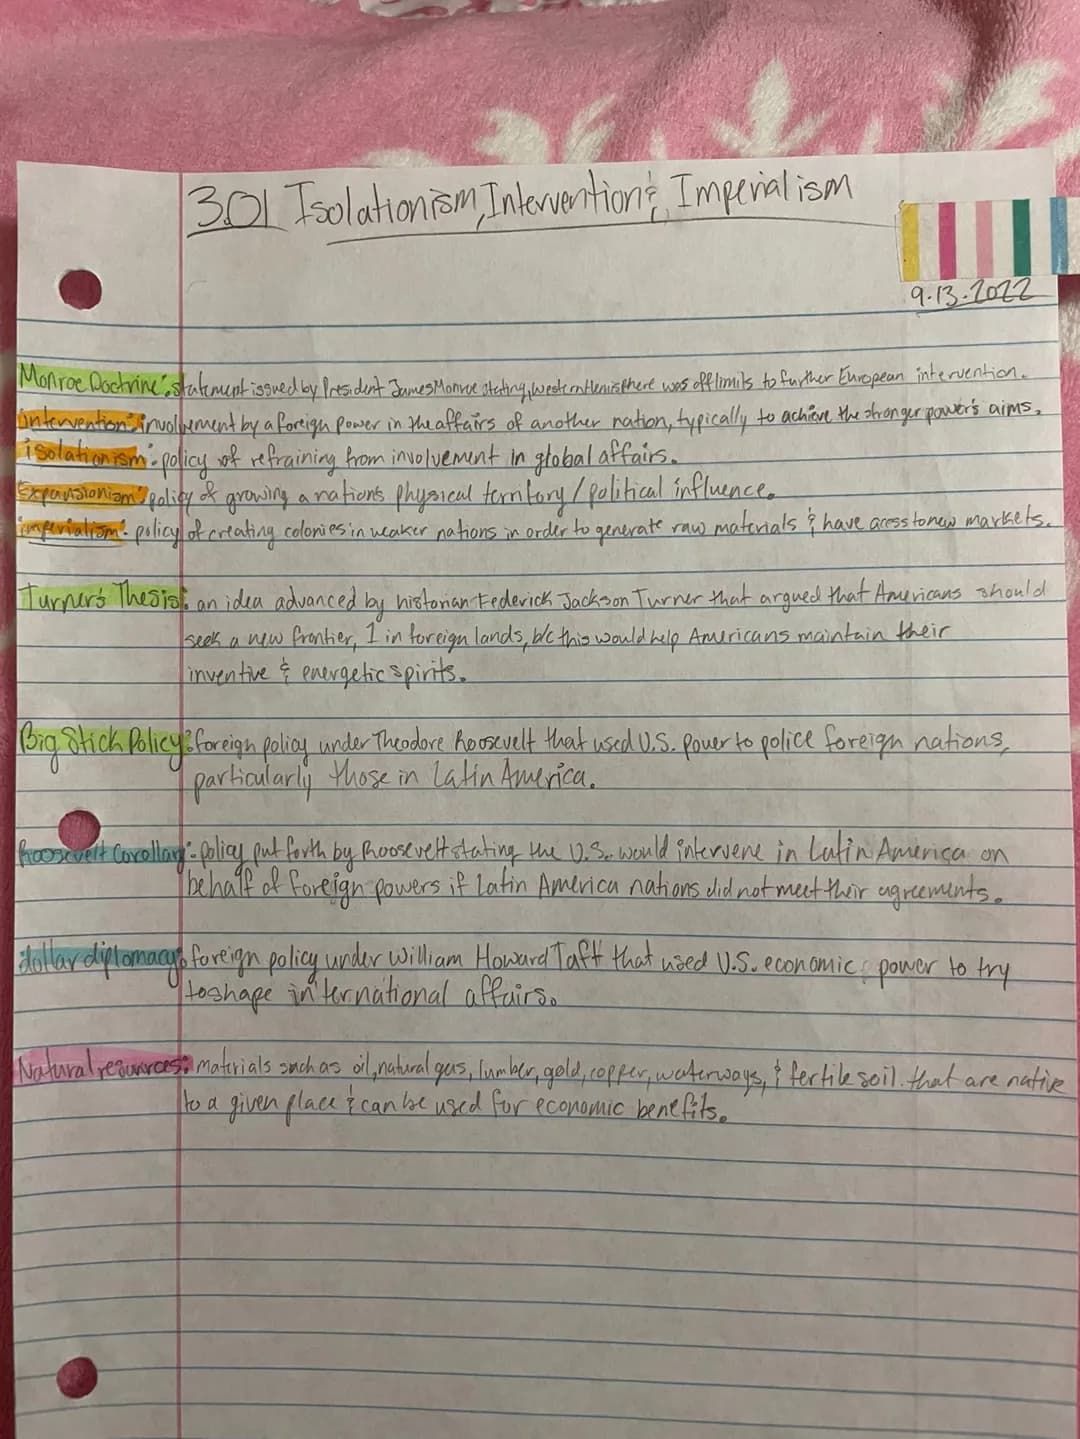 3.01 Isolationism, Intervention & Imperialism
9.13.2022
Monroe Doctrine: statement issued by President James Monroe stating, western Hemisphere was off limits to further European intervention.
intervention: involvement by a foreign power in the affairs of another nation, typically to achieve the stronger power's aims.
isolationism: policy of refraining from involvement in global affairs.
Expansionism: policy of growing a nation's physical territory / political influence.
imperialism: policy of creating colonies in weaker nations in order to generate raw materials & have acess to new markets.
Turner's Thesis: an idea advanced by historian Federick Jackson Turner that argued that Americans should
seek a new frontier, 1 in foreign lands, b/c this would help Americans maintain their
inventive & energetic spirits.
Big Stick Policy: foreign policy under Theodore Roosevelt that used U.S. power to police foreign nations,
particularly those in Latin America.
Roosevelt Corollary: policy put forth by Roosevelt stating the U.S. would intervene in Latin America on
behalf of foreign powers if Latin America nations did not meet their agreements.
dollar diplomacy: foreign policy under William Howard Taft that used U.S. economic power to try
to shape international affairs.
Natural resources: materials such as oil, natural gas, lumber, gold, copper, waterways, & fertile soil that are native
to a given place & can be used for economic benefits.